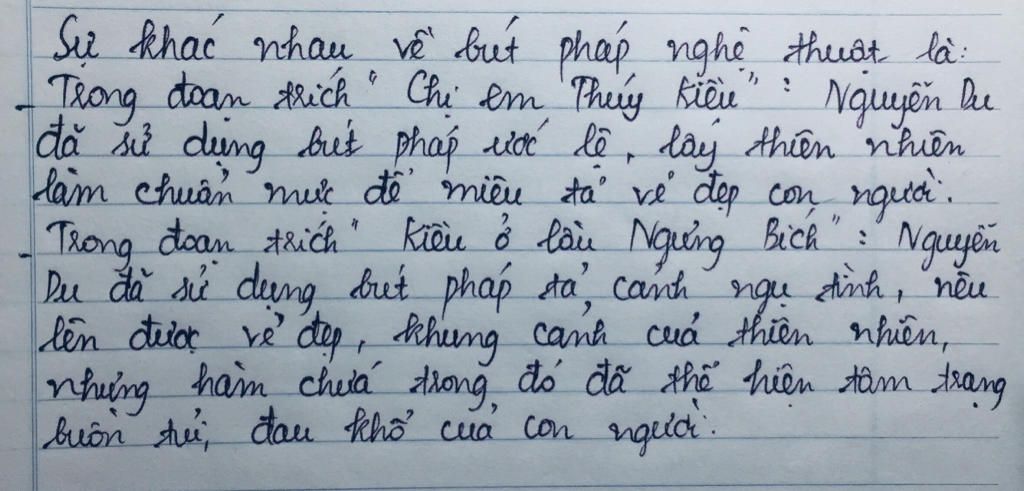 Sự khác nhau về bút pháp nghệ thuật là:
- Trong đoạn trích " Chị em Thúy Kiều" : Nguyễn Du
đã sử dụng bút pháp ước lệ, lấy thiên nhiên
làm chuẩn mực để miêu tả vẻ đẹp con người.
- Trong đoạn trích " Kiều ở lầu Ngưng Bích" : Nguyễn
Du đã sử dụng bút pháp tả cảnh ngụ tình, nêu
lên được vẻ đẹp, khung cảnh của thiên nhiên,
nhưng hàm chứa trong đó đã thể hiện tâm trạng
buồn tủi, đau khổ của con người.